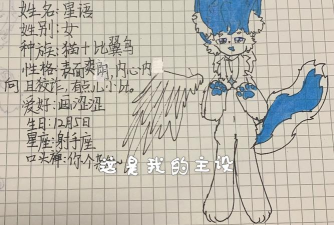 姓名:星语
性别:女
种族:猫+比翼鸟
性格:表面爽朗,内心内
向且狡诈,有点儿小比。
爱好:画涩涩
生日:12月5日
星座:射手座
口头禅:你个
这是我的主设